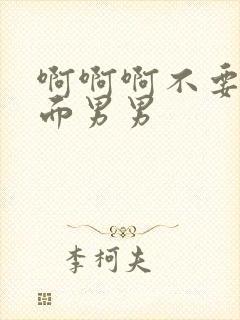 啊啊啊不要
而男男
李柯夫